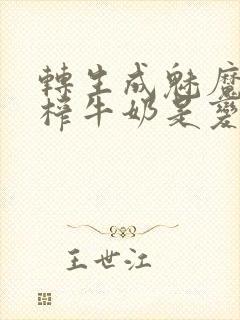 轉生成魅魔
榨牛奶是變
王世江